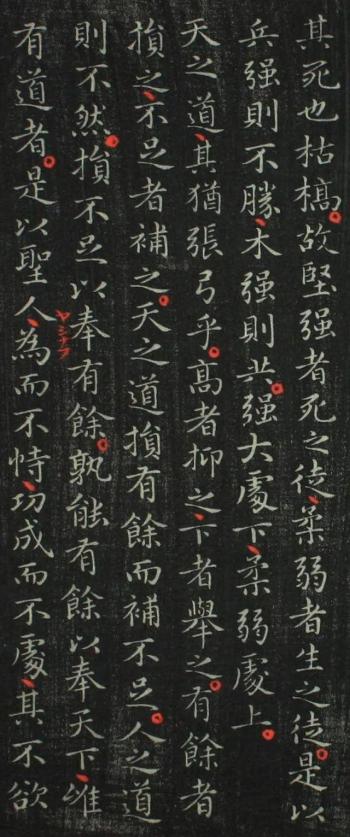 其死也枯槁。故堅强者死之徒、柔弱者生之徒。是以
兵强則不勝、木强則共。强大處下、柔弱處上。
天之道、其猶張弓乎。高者抑之、下者舉之。有餘者
損之、不足者補之。天之道損有餘而補不足。人之道
則不然。損不足以奉有餘。孰能有餘以奉天下、唯
有道者。是以聖人、為而不恃、功成而不處、其不欲